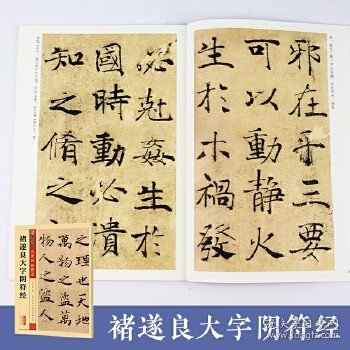 邪在乎三要
可以動静火
生於木禍發
必尅姦生於
國時動必潰
知之脩之
褚遂良大字阴符经
之理也天地
萬物之盗萬
物人之盗人
褚遂良大字阴符经